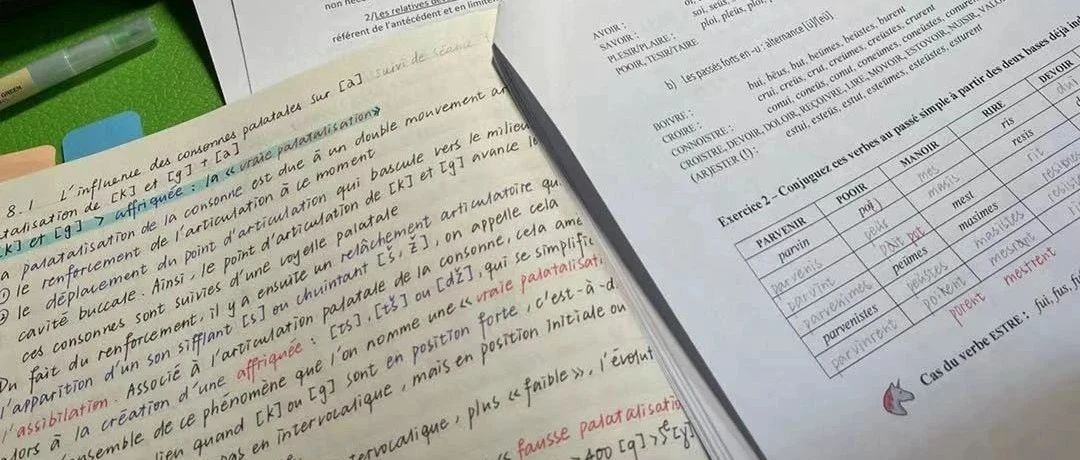 GREEN
non néc
2/Les relatives des
référent de l'antécédent et en limiten
8.1 L'influence des consonnes palatales sur [a] suivi de
talisation de [k] et [g] + [a]
[k] et [g] > affriquée : la « vraie palatalisation»
a palatalisation de la consonne est due à un double mouvement
① le renforcement de l'articulation à ce moment
② le déplacement du point d'articulation qui bascule vers le milieu
cavité buccale. Ainsi, le point d'articulation de [k] et [g] avance
ces consonnes sont suivies d'une voyelle palatale
Du fait du renforcement, il y a ensuite un relâchement articulatoire qu
l'apparition d'un son sifflant [s] ou chuintant [š, ž], on appelle cela
l'assibilation. Associé à l'articulation palatale de la consonne, cela
alors à la création d'une affriquée : [ts], [tš] ou [dž], qui se simplifie
ensemble de ce phénomène que l'on nomme une « vraie palatalisat
lieu quand [k] ou [g] sont en position forte, c'est-à-d
pas en intervocalique, mais en position initiale ou
tervocalique, plus « faible », l'évolut
« fausse palatalisatio
AVOIR :
SAVOIR :
PLESIR/PLAIRE :
POOIR, TESIR/TAIRE
ploi, pleüs, plot,
b) Les passés forts en -u : alternance [ü]/[eü]
BOIVRE : bui, beüs, but, beümes, beüstes, burent
CROIRE : crui, creüs, crut, creümes, creüstes, crurent
CONNOISTRE : conui, coneüs, conut, coneümes, coneüstes, conurent
CROISTRE, DEVOIR, DOLOIR, REÇOIVRE, LIRE, MOVOIR, ESTOVOIR, NUISIR,
(AR)ESTER (1) : estui, esteüs, estut, esteümes, esteüstes, esturent
Exercice 2 – Conjuguez ces verbes au passé simple à partir des deux bases déjà
PARVENIR POOIR MANOIR RIRE DEVOIR
parvin poi mes ris dui
parvenis peüs masis resis
parvint pot mest rit
parvenimes peümes masimes resimes
parvenistes peüstes masistes
parvinrent porent mestrent
porent mestrent
Cas du verbe ESTRE : fui, fus,